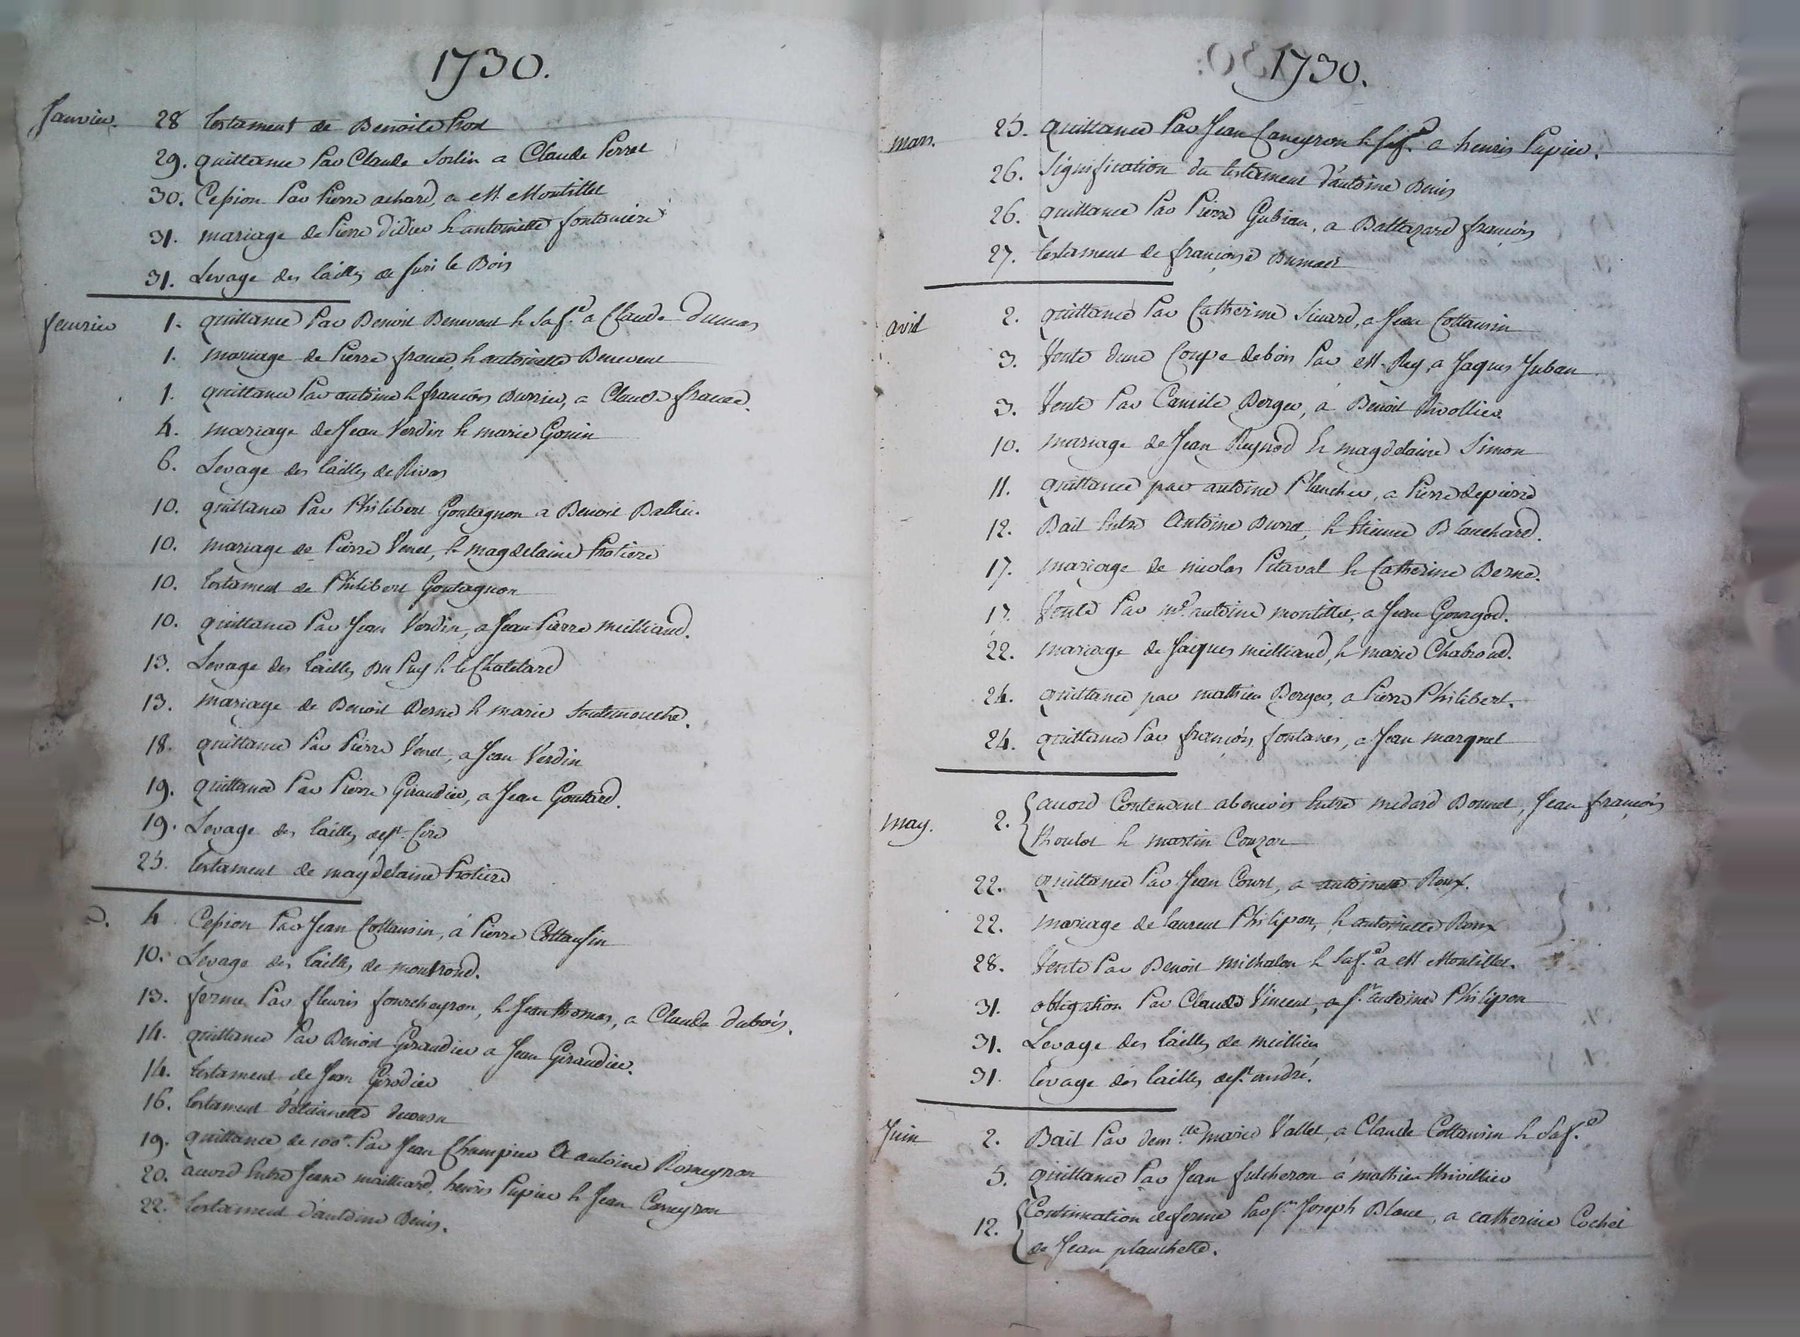 1730.
Janvier. 28 testament de Benoite
29. quittance par Claude Sorlin a Claude Perret
30. Cession par Pierre achard, a Mr. Montillet
31. mariage de Pierre Didier & antoinette fontanière
31. Levage des tailles de Suri le Bois
fevrier 1. quittance par Benoit Benevent & sa f.e a Claude Dumas
1. mariage de Pierre france, & antoinette Benevent
1. quittance par antoine & françois Durrieu, a Claude france.
4. mariage de Jean Verdin & marie Gonin
6. Levage des tailles de Rivas
10. quittance par Philibert Goutagnon a Benoit Ballie.
10. mariage de Pierre Venet, & magdelaine Protiere
10. testament de Philibert Goutagnon
10. quittance par Jean Verdin, a Jean Pierre meilliand.
13. Levage des tailles du Puy & le Chatelard
13. mariage de Benoit Berne & marie
18. quittance par Pierre Venet, a Jean Verdin
19. quittance par Pierre Giraudier, a Jean Goutard.
19. Levage des tailles de St. Cire
25. testament de magdelaine Protiere
4 Cession par Jean Cottansin, á Pierre Cottansin
10. Levage des tailles de montrond.
13. ferme par fleuris fourcheyron, & Jean thomas, a Claude dubois.
14. quittance par Benoit Giraudier a Jean Giraudier.
14. testament de Jean Girodier
16. testament d'etiennette
19. quittance de 100tt. par Jean Champier a antoine Romeyron
20. accord entre Jeane meilliard, henris Pupier & Jean Caneyron
22. testament d'antoine Denis.
1730.
mars. 25. quittance par Jean Caneyron & sa f.e a henris Pupier.
26. Signification du testament d'antoine Denis
26. quittance par Pierre Gubian, a Baltazard françois
27. testament de françoise Dumas
avril 2. quittance par Catherine Sicard, a Jean Cottansin
3. Vente dune Coupe de bois par Mr. Rey, a Jaques Juban
3. Vente par Camile Berger, á Benoit Rivollier
10. mariage de Jean Reynod & magdelaine Simon
11. quittance par antoine Plancher, a Pierre depierre
12. Bail entre Antoine Durret, & Etienne Blanchard.
17. mariage de nicolas Pitaval & Catherine Berne.
17. Vente par me. antoine montillet, a Jean Gourgod.
22. mariage de Jaques meilliand, & marie Chabroud.
24. quittance par mathieu Berger, a Pierre Philibert.
24. quittance par françois fontanes, a Jean marquet
may. 2. accord Contenant abenevis entre medard Bonnet, Jean françois
Thoulot & martin Couzon
22. quittance par Jean Court, a antoinette Roux.
22. mariage de laurent Philipon, & antoinette Roux
28. Vente par Benoit michalon & sa f.e a Mr Montillet.
31. obligation par Claude Vincent, a Sr. antoine Philipon
31. Levage des tailles de meillieu
31. levage des tailles de St. andré.
Juin 2. Bail par dem.lle marie Vallet, a Claude Cottansin & sa f.e
5. quittance par Jean fulcheron á mathieu thivillier
12. Continuation de ferme par Sr. Joseph Blanc, a catherine Cochet
de Jean planchette.